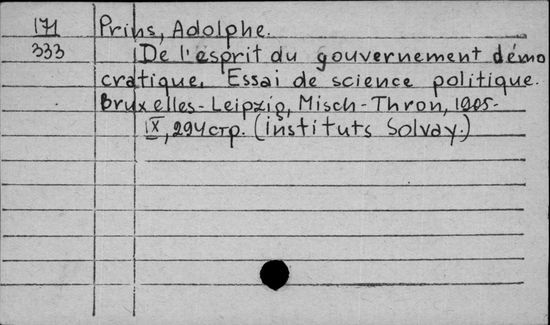 171 Prins, Adolphe.
333 De l'esprit du gouvernement démo
cratique. Essai de science politique.
Bruxelles-Leipzig, Misch-Thron, 1905.
IX, 294 стр. (instituts Solvay.)